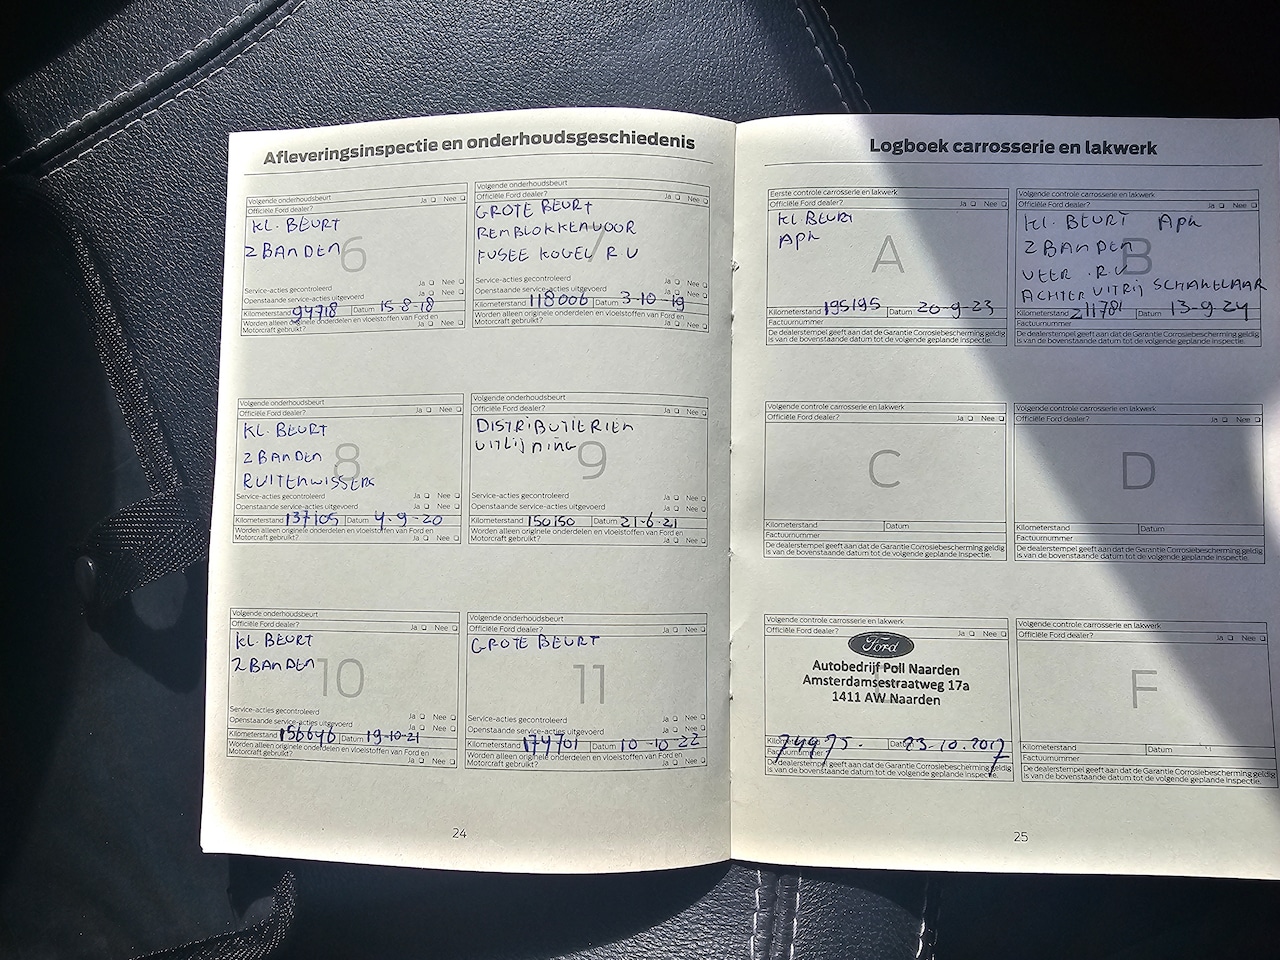 Afleveringsinspectie en onderhoudsgeschiedenis
Volgende onderhoudsbeurt
Officiële Ford dealer? Ja Nee
KL. BEURT
2 BANDEN
6
Service-acties gecontroleerd Ja Nee
Openstaande service-acties uitgevoerd Ja Nee
Kilometerstand 94718 Datum 15-8-18
Worden alleen originele onderdelen en vloeistoffen van Ford en
Motorcraft gebruikt? Ja Nee
Volgende onderhoudsbeurt
Officiële Ford dealer? Ja Nee
GROTE BEURT
REMBLOKKEN VOOR
FUSEE KOGEL R V
7
Service-acties gecontroleerd Ja Nee
Openstaande service-acties uitgevoerd Ja Nee
Kilometerstand 118006 Datum 3-10-19
Worden alleen originele onderdelen en vloeistoffen van Ford en
Motorcraft gebruikt? Ja Nee
Volgende onderhoudsbeurt
Officiële Ford dealer? Ja Nee
KL. BEURT
2 BANDEN
8
RUITENWISSERS
Service-acties gecontroleerd Ja Nee
Openstaande service-acties uitgevoerd Ja Nee
Kilometerstand 137105 Datum 4-9-20
Worden alleen originele onderdelen en vloeistoffen van Ford en
Motorcraft gebruikt? Ja Nee
Volgende onderhoudsbeurt
Officiële Ford dealer? Ja Nee
DISTRIBUTIERIEM
UITLIJNING
9
Service-acties gecontroleerd Ja Nee
Openstaande service-acties uitgevoerd Ja Nee
Kilometerstand 150150 Datum 21-6-21
Worden alleen originele onderdelen en vloeistoffen van Ford en
Motorcraft gebruikt? Ja Nee
Volgende onderhoudsbeurt
Officiële Ford dealer? Ja Nee
KL. BEURT
2 BANDEN
10
Service-acties gecontroleerd Ja Nee
Openstaande service-acties uitgevoerd Ja Nee
Kilometerstand 156646 Datum 19-10-21
Worden alleen originele onderdelen en vloeistoffen van Ford en
Motorcraft gebruikt? Ja Nee
Volgende onderhoudsbeurt
Officiële Ford dealer? Ja Nee
GROTE BEURT
11
Service-acties gecontroleerd Ja Nee
Openstaande service-acties uitgevoerd Ja Nee
Kilometerstand 174701 Datum 10-10-22
Worden alleen originele onderdelen en vloeistoffen van Ford en
Motorcraft gebruikt? Ja Nee
24
Logboek carrosserie en lakwerk
Eerste controle carrosserie en lakwerk
Officiële Ford dealer? Ja Nee
KL BEURT
APK
A
Kilometerstand 195195 Datum 20-9-23
Factuurnummer
De dealerstempel geeft aan dat de Garantie Corrosiebescherming geldig
is van de bovenstaande datum tot de volgende geplande inspectie.
Volgende controle carrosserie en lakwerk
Officiële Ford dealer? Ja Nee
KL. BEURT APK
2 BANDEN
B
VEER R.V
ACHTER UITRIJ SCHAKELAAR
Kilometerstand 211781 Datum 13-9-24
Factuurnummer
De dealerstempel geeft aan dat de Garantie Corrosiebescherming geldig
is van de bovenstaande datum tot de volgende geplande inspectie.
Volgende controle carrosserie en lakwerk
Officiële Ford dealer? Ja Nee
C
Kilometerstand Datum
Factuurnummer
De dealerstempel geeft aan dat de Garantie Corrosiebescherming geldig
is van de bovenstaande datum tot de volgende geplande inspectie.
Volgende controle carrosserie en lakwerk
Officiële Ford dealer? Ja Nee
D
Kilometerstand Datum
Factuurnummer
De dealerstempel geeft aan dat de Garantie Corrosiebescherming geldig
is van de bovenstaande datum tot de volgende geplande inspectie.
Volgende controle carrosserie en lakwerk
Officiële Ford dealer? Ja Nee
Ford
Autobedrijf Poll Naarden
Amsterdamsestraatweg 17a
1411 AW Naarden
Kilometerstand 74975. Datum 23.10.2017
Factuurnummer
De dealerstempel geeft aan dat de Garantie Corrosiebescherming geldig
is van de bovenstaande datum tot de volgende geplande inspectie.
Volgende controle carrosserie en lakwerk
Officiële Ford dealer? Ja Nee
F
Kilometerstand Datum
Factuurnummer
De dealerstempel geeft aan dat de Garantie Corrosiebescherming geldig
is van de bovenstaande datum tot de volgende geplande inspectie.
25